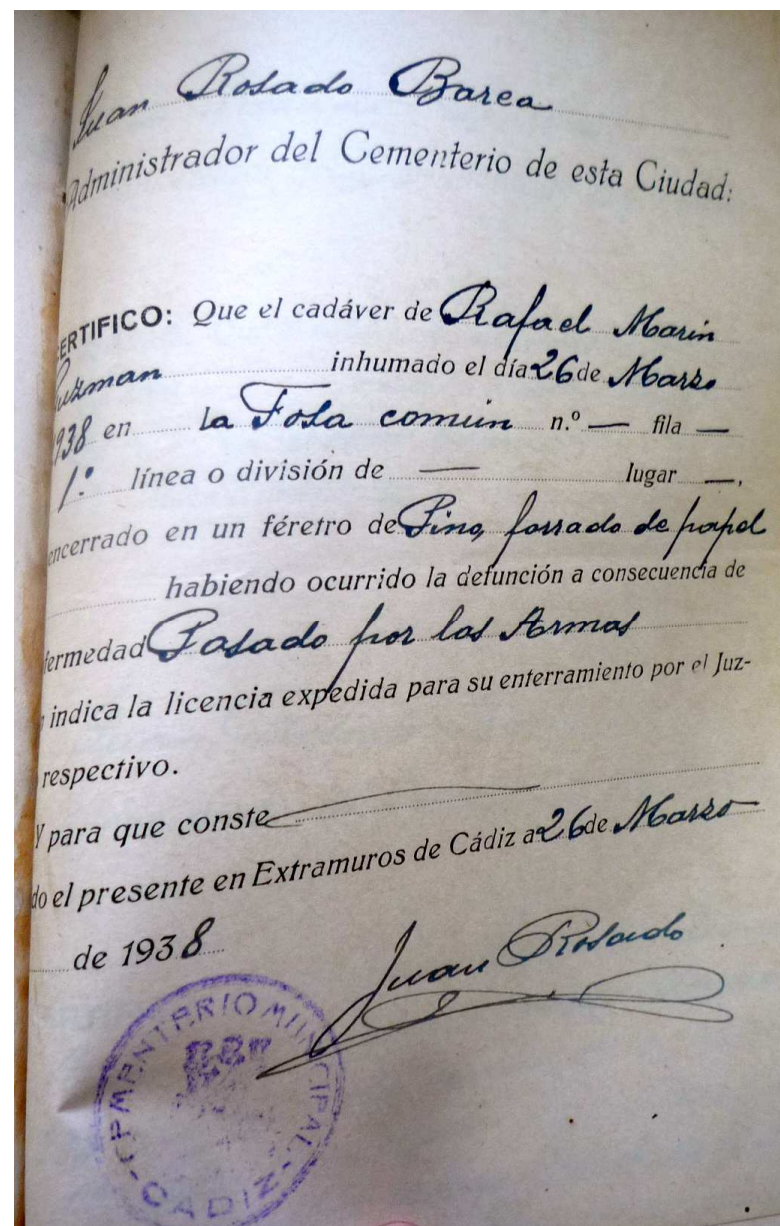 Juan Rosado Barea
Administrador del Cementerio de esta Ciudad:
ERTIFICO: Que el cadáver de Rafael Marin
uzman inhumado el día 26 de Marzo
938 en La Fosa común n.º — fila —
1.º línea o división de — lugar —,
encerrado en un féretro de Pino, forrado de papel
habiendo ocurrido la defunción a consecuencia de
fermedad Pasado por las Armas
indica la licencia expedida para su enterramiento por el Juz-
respectivo.
Y para que conste
do el presente en Extramuros de Cádiz a 26 de Marzo
de 1938
Juan Rosado
CEMENTERIO MUNICIPAL
CADIZ